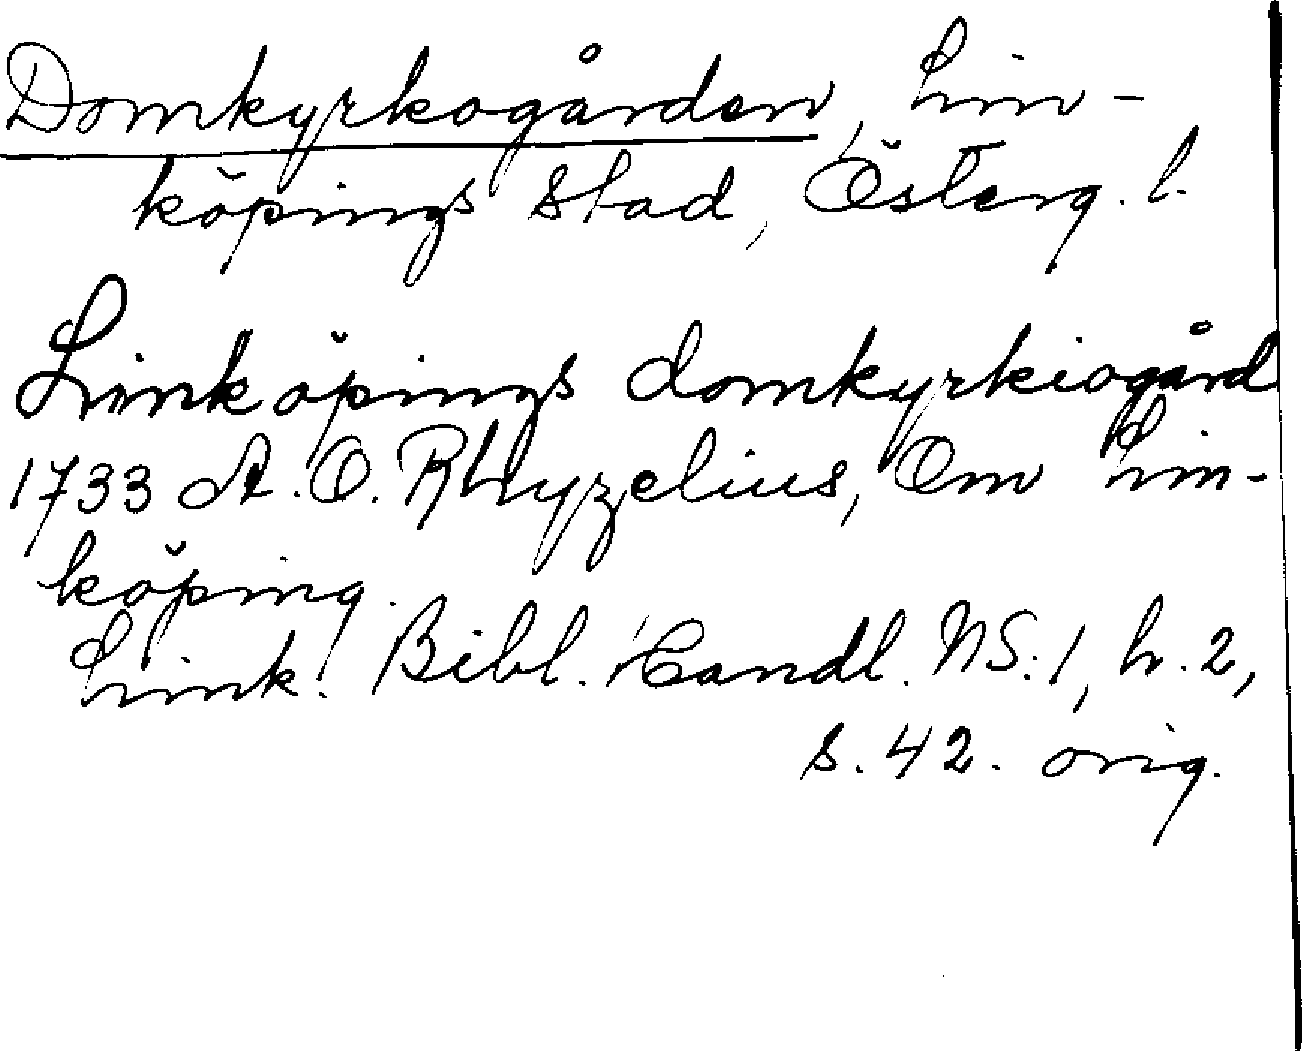 Domkyrkogården, Lin-
köpings stad, Österg. l.
Linköpings domkyrkiogård
1733 A. O. Rhyzelius, Om Lin-
köping.
Link. Bibl. Handl. NS:1, h. 2,
s. 42. orig.